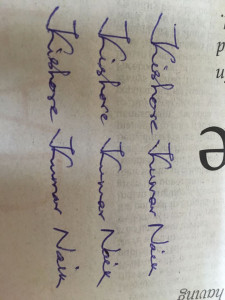 Kishore Kumar Naik
Kishore Kumar Naik
Kishore Kumar Naik
e
having